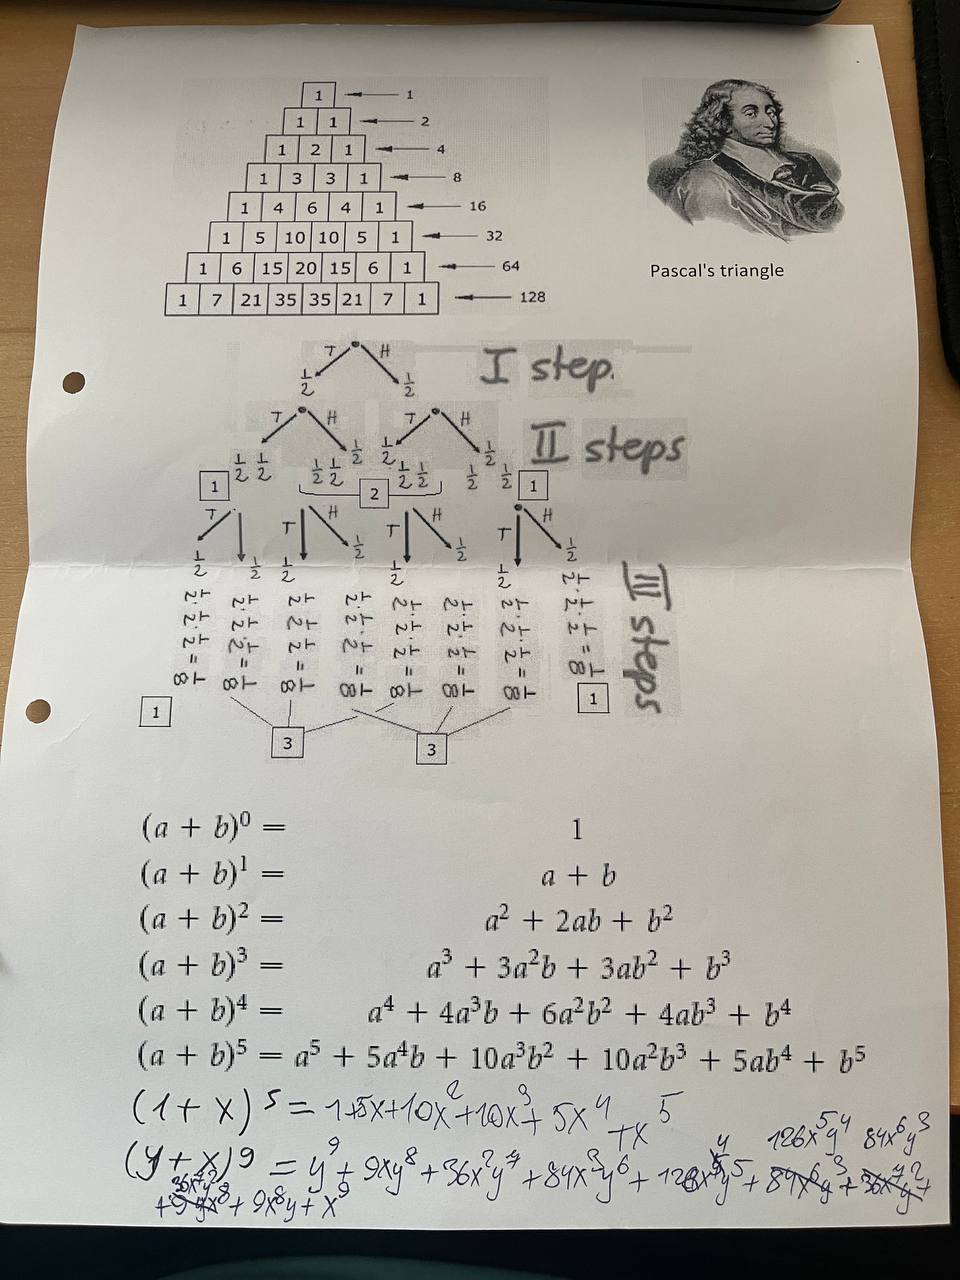 1 1
1 1 2
1 2 1 4
1 3 3 1 8
1 4 6 4 1 16
1 5 10 10 5 1 32
1 6 15 20 15 6 1 64
1 7 21 35 35 21 7 1 128
Pascal's triangle
T H
1/2 1/2
I step.
T H T H
1/2 1/2
1/2 1/2 1/2 1/2 1/2 1/2 1/2 1/2
II steps
1 2 1
T H T H T H
1/2 1/2 1/2 1/2 1/2 1/2 1/2 1/2
III steps
1/2·1/2·1/2=1/8
1/2·1/2·1/2=1/8
1/2 1/2 1/2=1/8
1/2·1/2·1/2=1/8
1/2·1/2·1/2=1/8
1/2·1/2·1/2=1/8
1/2·1/2·1/2=1/8
1/2·1/2·1/2=1/8
1 1
3 3
(a + b)⁰ = 1
(a + b)¹ = a + b
(a + b)² = a² + 2ab + b²
(a + b)³ = a³ + 3a²b + 3ab² + b³
(a + b)⁴ = a⁴ + 4a³b + 6a²b² + 4ab³ + b⁴
(a + b)⁵ = a⁵ + 5a⁴b + 10a³b² + 10a²b³ + 5ab⁴ + b⁵
(1 + x)⁵ = 1+5x+10x²+10x³+5x⁴+x⁵
126x⁵y⁴ 84x⁶y³
(y + x)⁹ = y⁹ + 9xy⁸ + 36x²y⁷ + 84x³y⁶ + 126x⁴y⁵ + 84x⁶y³ + 36x⁷y² +
36x⁷y²
+ 9yx⁸ + 9x⁸y + x⁹